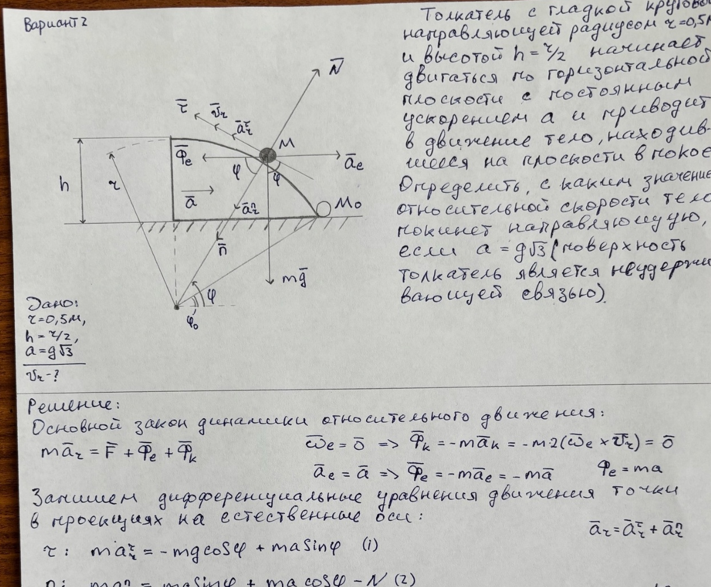 Вариант 2
Толкатель с гладкой круговой
направляющей радиусом r=0,5м
и высотой h = r/2 начинает
двигаться по горизонтальной
плоскости с постоянным
ускорением a и приводит
в движение тело, находив-
шееся на плоскости в покое
Определить, с каким значение
относительной скорости тело
покинет направляющую,
если a = g√3 (поверхность
толкатель является неудержи
вающей связью).
N̄
τ̄
v̄r
ā_r^τ
M
Φ̄e
āe
φ
φ
h
r
ā
ā_r^n
M0
n̄
mḡ
φ
φ0
Дано:
r=0,5м,
h=r/2,
a=g√3
vr-?
Решение:
Основной закон динамики относительного движения:
mār = F̄ + Φ̄e + Φ̄k
ω̄e = 0̄ => Φ̄k = -māk = -m2(ω̄e × v̄r) = 0̄
āe = ā => Φ̄e = -māe = -mā
Φe = ma
Запишем дифференциальные уравнения движения точки
в проекциях на естественные оси:
ār = ā_r^τ + ā_r^n
τ: ma_r^τ = -mgcosφ + masinφ (1)
n: ma_r^n = masinφ + macosφ - N (2)